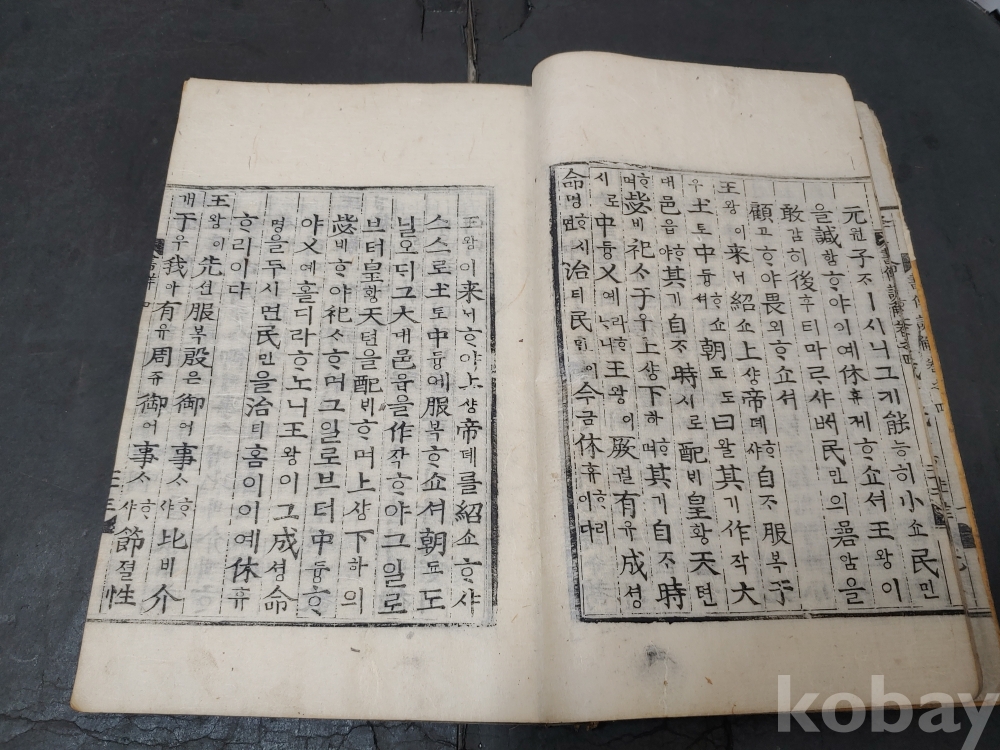 書傳諺解卷之四
元원子ᄌᆞㅣ시니그키能능히小쇼民민
을諴함ᄒᆞ야이예休휴제ᄒᆞ쇼셔王왕이
敢감히後후티마ᄅᆞ샤民민의碞암을
顧고ᄒᆞ야畏외ᄒᆞ쇼셔
王왕이来ᄅᆡ紹쇼上샹帝뎨ᄒᆞ샤自ᄌᆞ服복于
우土토中듕ᄒᆞ쇼셔朝됴도曰왈其기作작大
대邑읍ᄒᆞ야其기自ᄌᆞ時시로配ᄇᆡ皇황天텬
ᄒᆞ며毖비祀ᄉᆞ于우上샹下하ᄒᆞ며其기自ᄌᆞ時
시로中듕乂예라ᄒᆞ니王왕이厥궐有유成셩
命명ᄒᆞ시면治티民민이今금休휴ᄒᆞ리이다
王왕이来ᄅᆡᄒᆞ야上샹帝뎨를紹쇼ᄒᆞ샤
스스로土토듕에服복ᄒᆞ쇼셔朝됴도
닐오ᄃᆡ그大대邑읍을作작ᄒᆞ야그일로
브터皇황天텬을配ᄇᆡᄒᆞ며上샹下하의
毖비ᄒᆞ야祀ᄉᆞᄒᆞ며그일로브터中듕ᄒᆞ
야乂예ᄒᆞᆯ디라ᄒᆞ노니王왕이그成셩命
명을두시면民민을治티홈이이예休휴
ᄒᆞ리이다
王왕이先션服복殷은御어事ᄉᆞᄒᆞ샤比비介
개于우我아有유周쥬御어事ᄉᆞᄒᆞ샤節졀性
kobay